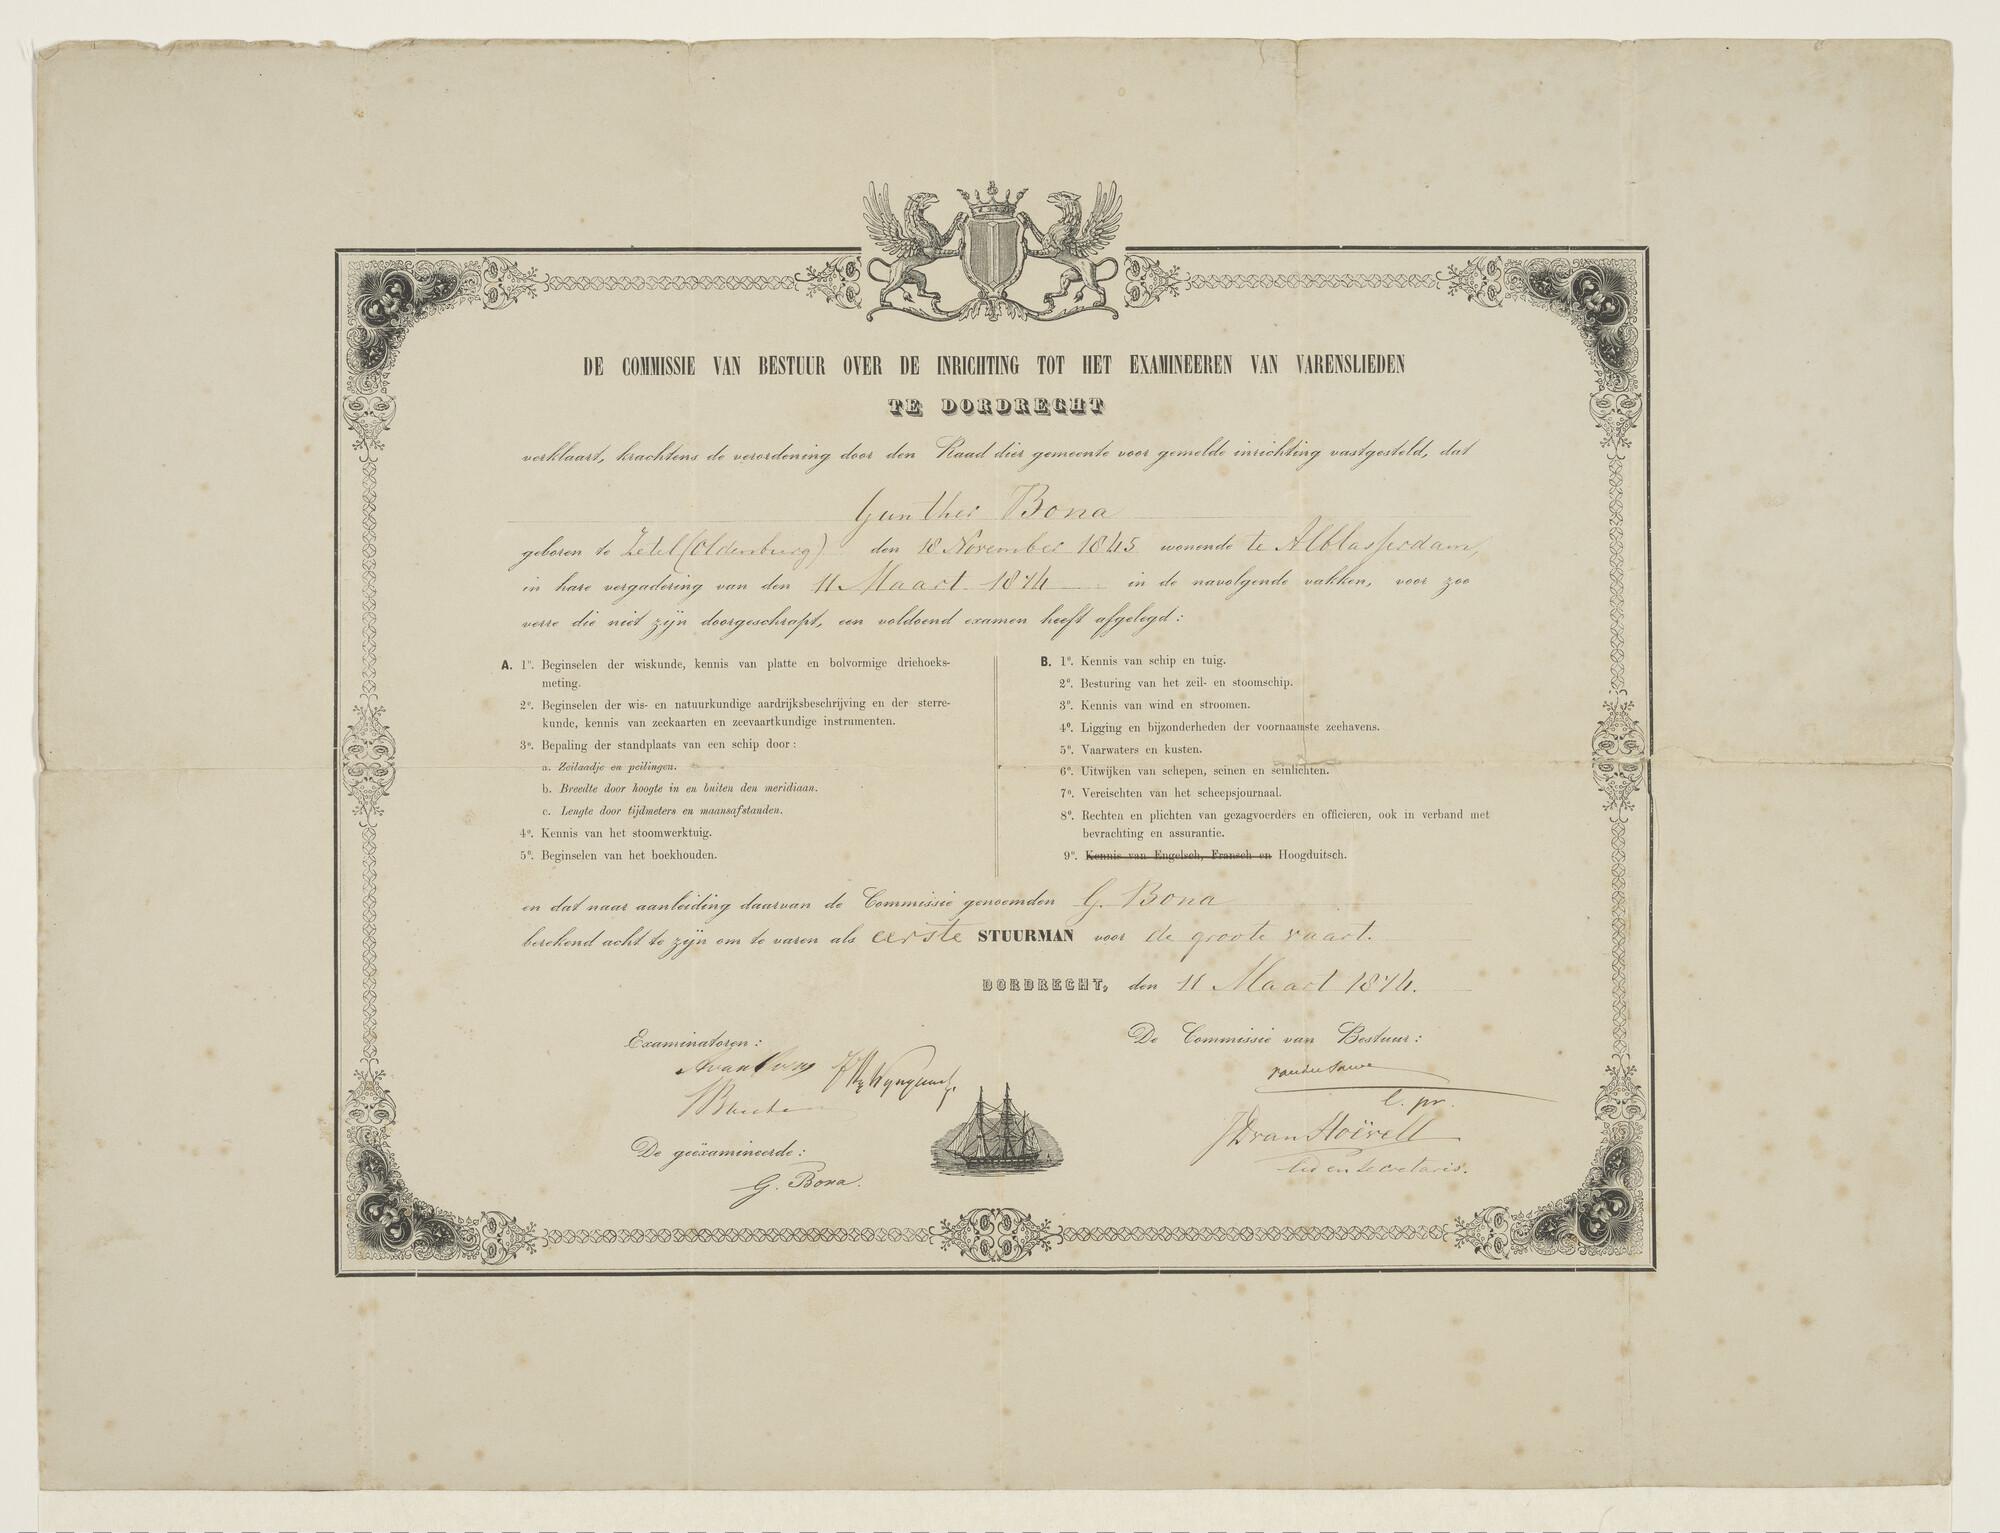 DE COMMISSIE VAN BESTUUR OVER DE INRICHTING TOT HET EXAMINEEREN VAN VARENSLIEDEN
TE DORDRECHT
verklaart, krachtens de verordening door den Raad dier gemeente voor gemelde inrichting vastgesteld, dat
Gunther Bona
geboren te Zetel (Oldenburg) den 18 November 1845 wonende te Alblasserdam,
in hare vergadering van den 11 Maart 1874 in de navolgende vakken, voor zoo
verre die niet zijn doorgeschrapt, een voldoend examen heeft afgelegd:
A. 1o. Beginselen der wiskunde, kennis van platte en bolvormige driehoeks-
meting.
2o. Beginselen der wis- en natuurkundige aardrijksbeschrijving en der sterre-
kunde, kennis van zeekaarten en zeevaartkundige instrumenten.
3o. Bepaling der standplaats van een schip door:
a. Zeilaadje en peilingen.
b. Breedte door hoogte in en buiten den meridiaan.
c. Lengte door tijdmeters en maansafstanden.
4o. Kennis van het stoomwerktuig.
5o. Beginselen van het boekhouden.
B. 1o. Kennis van schip en tuig.
2o. Besturing van het zeil- en stoomschip.
3o. Kennis van wind en stroomen.
4o. Ligging en bijzonderheden der voornaamste zeehavens.
5o. Vaarwaters en kusten.
6o. Uitwijken van schepen, seinen en seinlichten.
7o. Vereischten van het scheepsjournaal.
8o. Rechten en plichten van gezagvoerders en officieren, ook in verband met
bevrachting en assurantie.
9o. Kennis van Engelsch, Fransch en Hoogduitsch.
en dat naar aanleiding daarvan de Commissie genoemden G. Bona
berekend acht te zijn om te varen als eerste STUURMAN voor de groote vaart.
DORDRECHT, den 11 Maart 1874.
Examinatoren:
De geëxamineerde:
G. Bona.
De Commissie van Bestuur:
l. pr.
JD van Hoëvell
lid en secretaris.